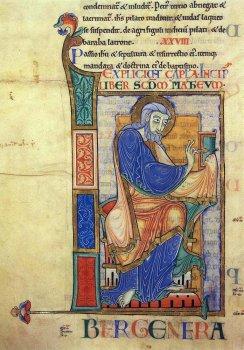 condemnat & illudit. Petr tercio abnegat &
lacrimat. ihs pilato traditur & iudas laqueo
se suspendit. de agri figuli pilati & de
baraba latrone. XXVIII.
Passio ihu & sepultura & resurrectio ei. itemq;
mandata & doctrina ei de baptismo.
EXPLICIT CAPLA INCIP
LIBER SCDM MATHEVM
LI
BER GENERA